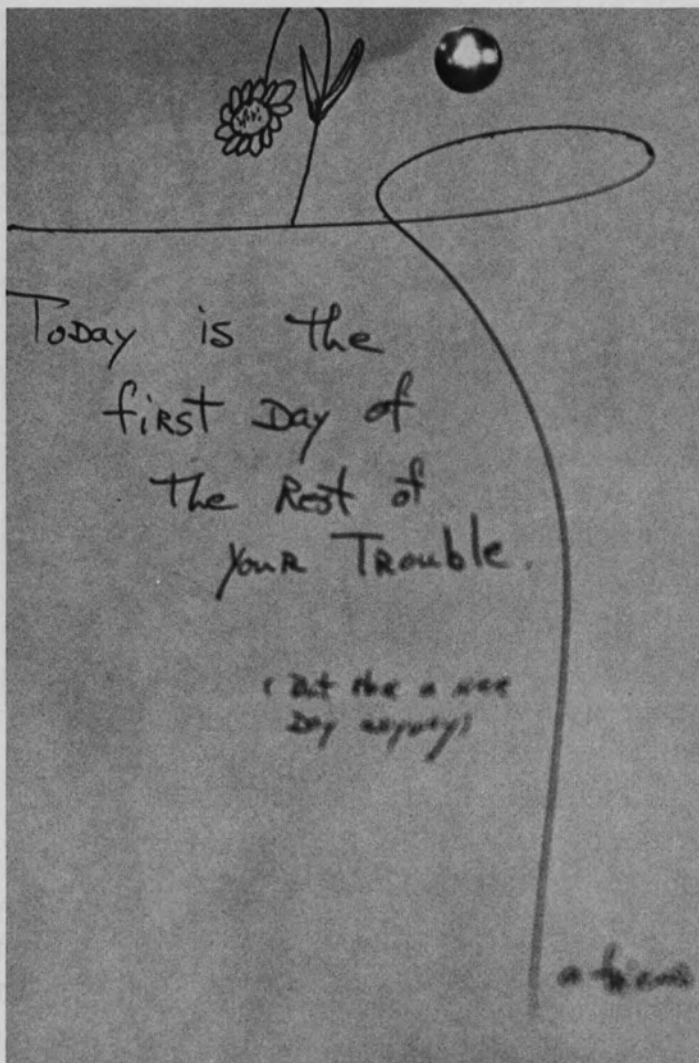 Today is the
first Day of
the Rest of
your Trouble.
(But have a nice
Day anyway)
a friend